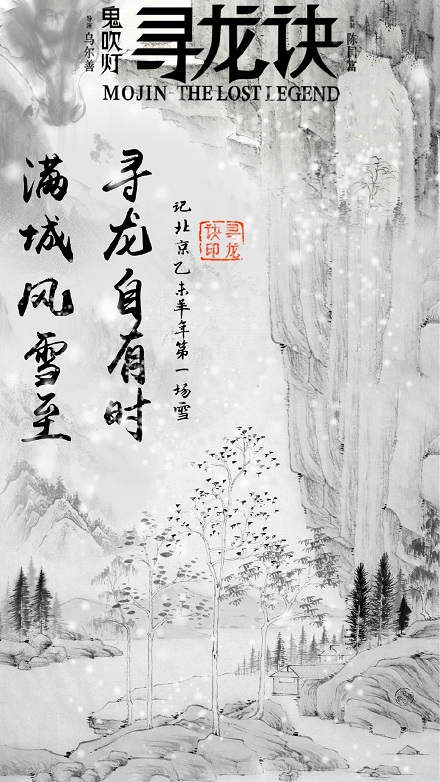 鬼吹灯
寻龙诀
导演 乌尔善
监制 陈国富
MOJIN-THE LOST LEGEND
记北京乙未羊年第一场雪
寻龙自有时
满城风雪至
寻龙
诀印